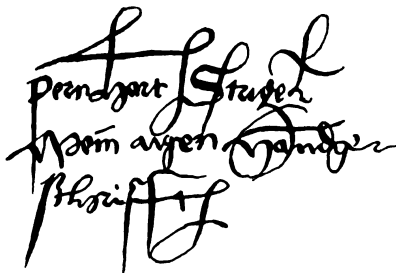 pernhart Strigel
Mein aigen handge
schrifft